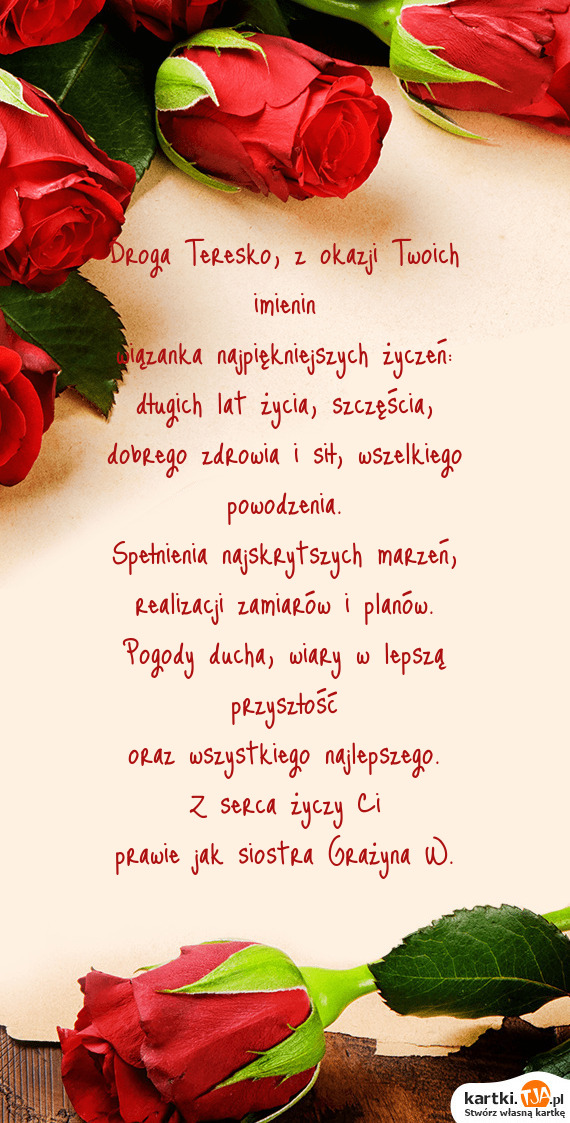 Droga Teresko, z okazji Twoich
imienin
wiązanka najpiękniejszych życzeń:
długich lat życia, szczęścia,
dobrego zdrowia i sił, wszelkiego
powodzenia.
Spełnienia najskrytszych marzeń,
realizacji zamiarów i planów.
Pogody ducha, wiary w lepszą
przyszłość
oraz wszystkiego najlepszego.
Z serca życzy Ci
prawie jak siostra Grażyna W.
kartki.TJA.pl
Stwórz własną kartkę